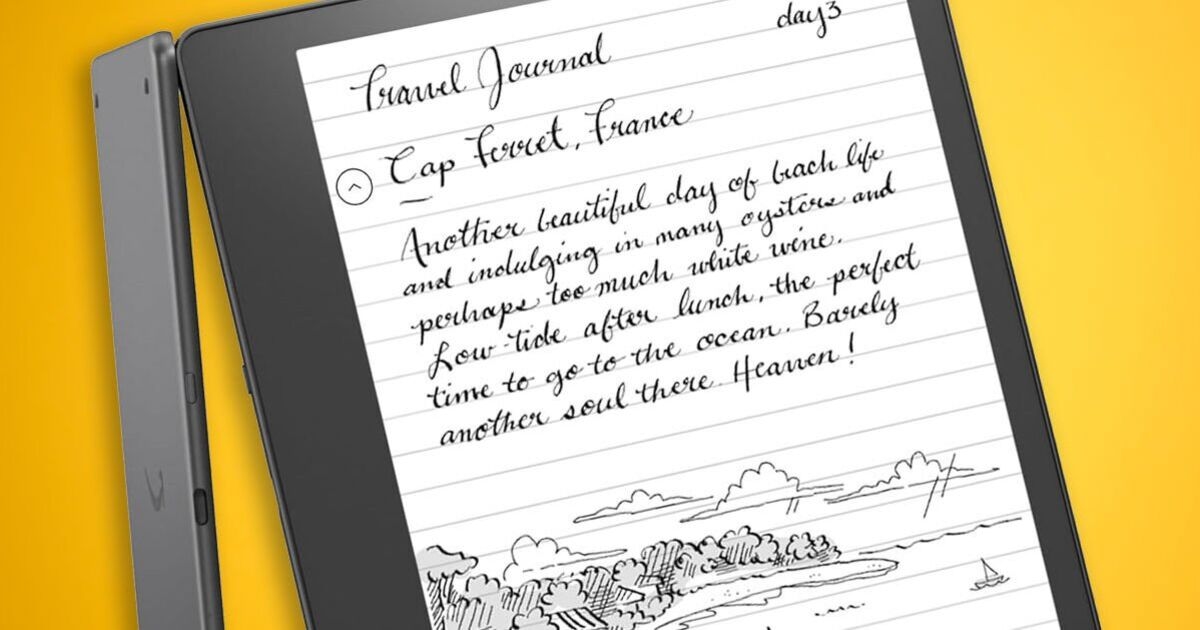 day 3
Travel Journal
Cap Ferret, France
Another beautiful day of beach life
and indulging in many oysters and
perhaps too much white wine.
Low-tide after lunch, the perfect
time to go to the ocean. Barely
another soul there. Heaven!